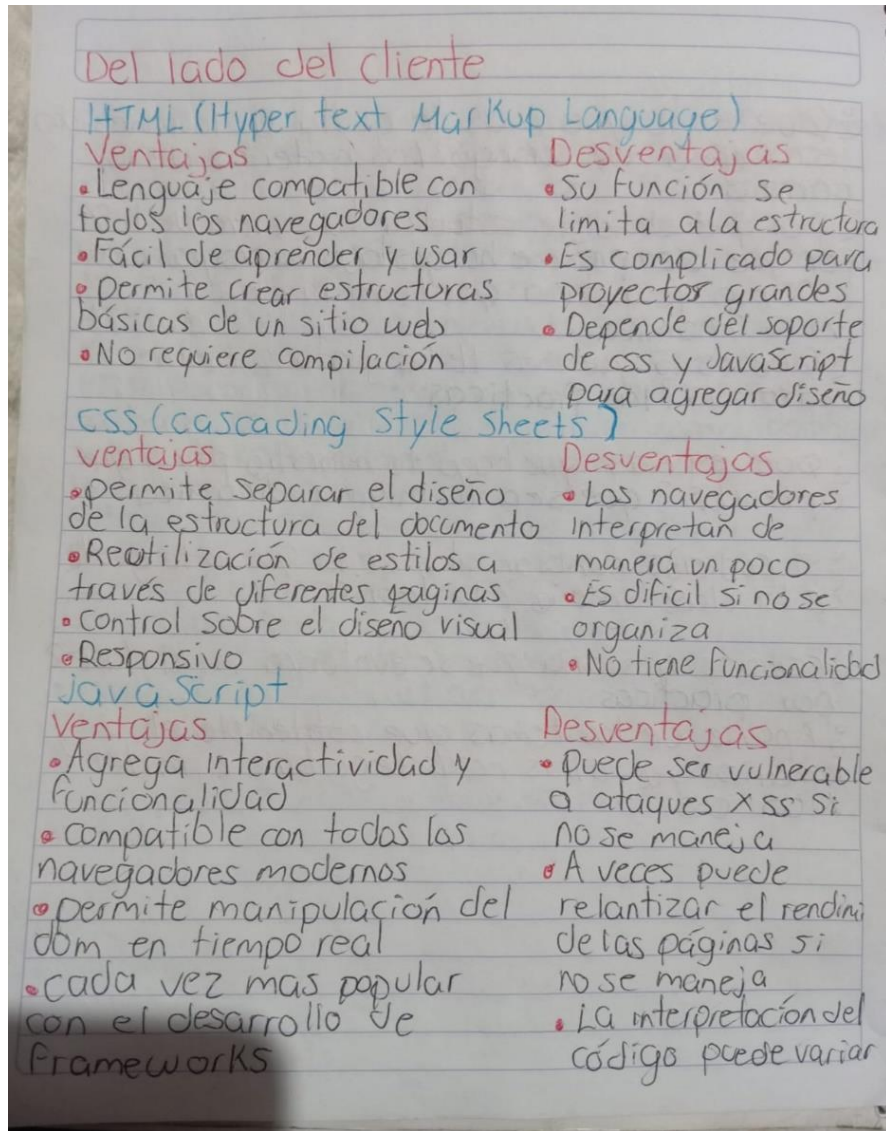 Del lado del cliente
HTML (Hyper text Markup Language)
Ventajas
• Lenguaje compatible con
todos los navegadores
• Fácil de aprender y usar
• permite crear estructuras
básicas de un sitio web
• No requiere compilación
Desventajas
• Su función se
limita ala estructura
• Es complicado para
proyector grandes
• Depende del soporte
de css y JavaScript
para agregar diseño
CSS (cascading Style Sheets)
ventajas
• permite separar el diseño
de la estructura del documento
• Reutilización de estilos a
través de diferentes paginas
• control sobre el diseño visual
• Responsivo
Desventajas
• Los navegadores
interpretan de
manera un poco
• Es dificil si no se
organiza
• No tiene funcionalidad
javaScript
ventajas
• Agrega interactividad y
funcionalidad
• compatible con todos los
navegadores modernos
• permite manipulación del
dom en tiempo real
• cada vez mas popular
con el desarrollo de
frameworks
Desventajas
• puede ser vulnerable
a ataques xss si
no se maneja
• A veces puede
relantizar el rendimi
de las páginas si
no se maneja
• La interpretación del
código puede variar